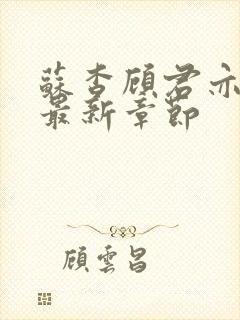 蘇杏顾君亦
最新章節
顧雲昌